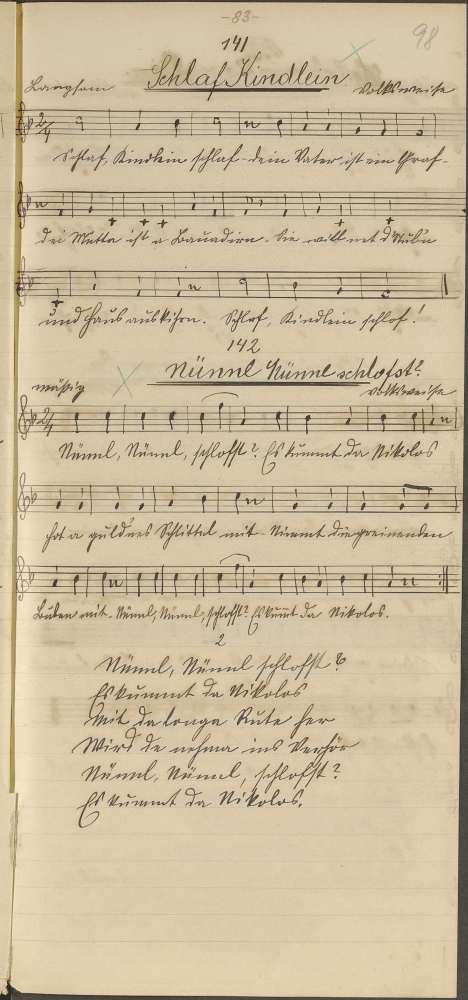 -83-
98
141
Schlaf Kindlein
Langsam Volksweise
Schlaf, Kindlein schlaf - dein Vater ist ein Graf -
dei Mutta ist a Bauadirn. Sie will net d'Stub'n
und Haus auskihrn. Schlof, Kindlein schlof!
142
Nünnl Nünnl schlofst?
mäßig Volksweise
Nünnl, Nünnl, schlofst? Es kummt da Nikolos
hot a guldnes Schlittel mit - Nimmt die greinenden
Buben mit. Nünnl, Nünnl, schlofst? Es kummt da Nikolos.
2
Nünnl, Nünnl schlofst?
Es kummt da Nikolos
Mit da longa Rute her
Wird de nehma ins Verhör
Nünnl, Nünnl, schlofst?
Es kummt da Nikolos.